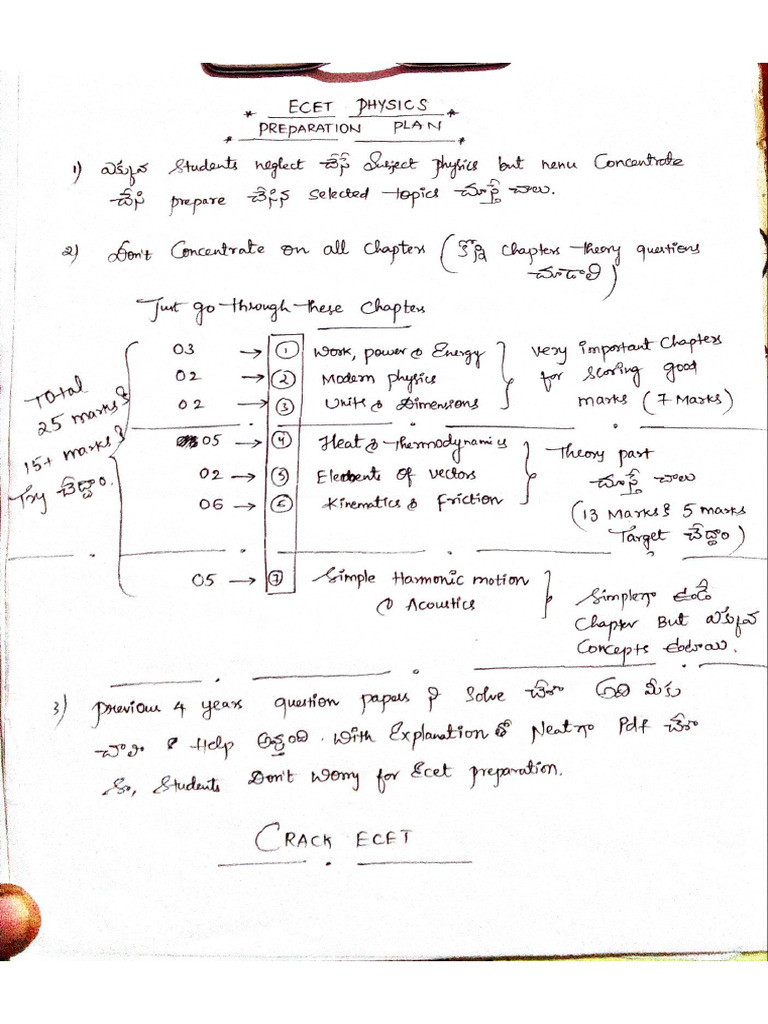 ECET PHYSICS
PREPARATION PLAN
1) ఎక్కువ Students neglect చేసే Subject physics but nenu Concentrate
చేసి prepare చేసిన selected topics చూస్తే చాలు.
2) Don't Concentrate on all Chapters (కొన్ని Chapters theory questions
చూడాలి)
Just go through these Chapters
03 → 1 Work, power & Energy
02 → 2 Modern physics
02 → 3 Units & Dimensions
very important Chapters
for scoring good
marks (7 Marks)
05 → 4 Heat & Thermodynamics
02 → 5 Elements of vectors
06 → 6 Kinematics & Friction
Theory part
చూస్తే చాలు
(13 Marks కి 5 marks
Target చేద్దాం)
05 → 7 Simple Harmonic motion
& Acoustics
Simpleగా ఉండే
Chapter But ఎక్కువ
Concepts ఉంటాయి.
Total
25 marks కి
15+ marks కి
Try చేద్దాం.
3) previous 4 years question papers ని Solve చేశా అది మీకు
చాలా Help అవుతుంది. With Explanation తో Neatగా Pdf చేశా
So, Students Don't Worry for Ecet preparation.
CRACK ECET